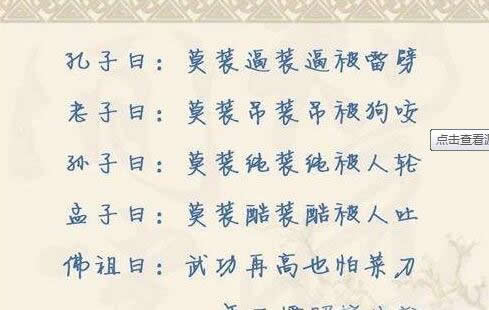 孔子曰：莫装逼装逼被雷劈
老子曰：莫装吊装吊被狗咬
点击查看源
孙子曰：莫装纯装纯被人轮
孟子曰：莫装酷装酷被人吐
佛祖曰：武功再高也怕菜刀